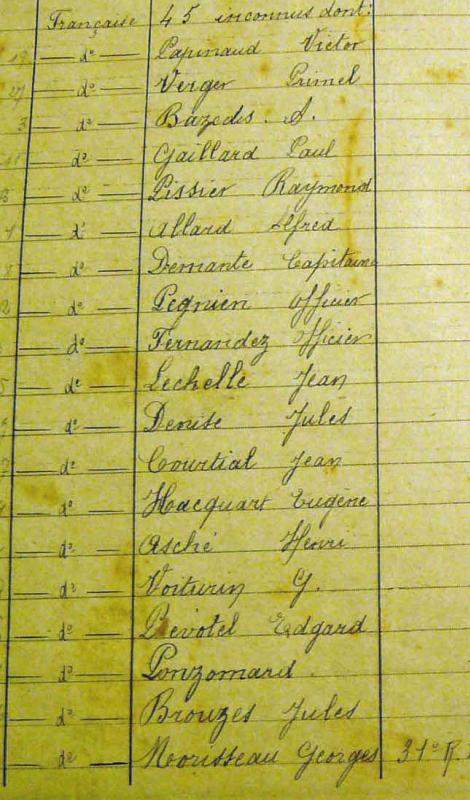 Française 45 inconnus dont:
19 — do — Papinaud Victor
27 — do — Verger Primel
3 — do — Bazedis. A.
— do — Gaillard Paul
— do — Pissier Raymond
— do — Allard Alfred
— do — Demante Capitaine
— do — Pegnien Officier
— do — Fernandez Officier
— do — Lechelle Jean
— do — Denise Jules
— do — Courtial Jean
— do — Hacquart Eugène
— do — Asché Henri
— do — Voiturin G.
— do — Edgard
— do — Ponzomard.
— do — Brouzes Jules
— do — Morisseau Georges 31e R.